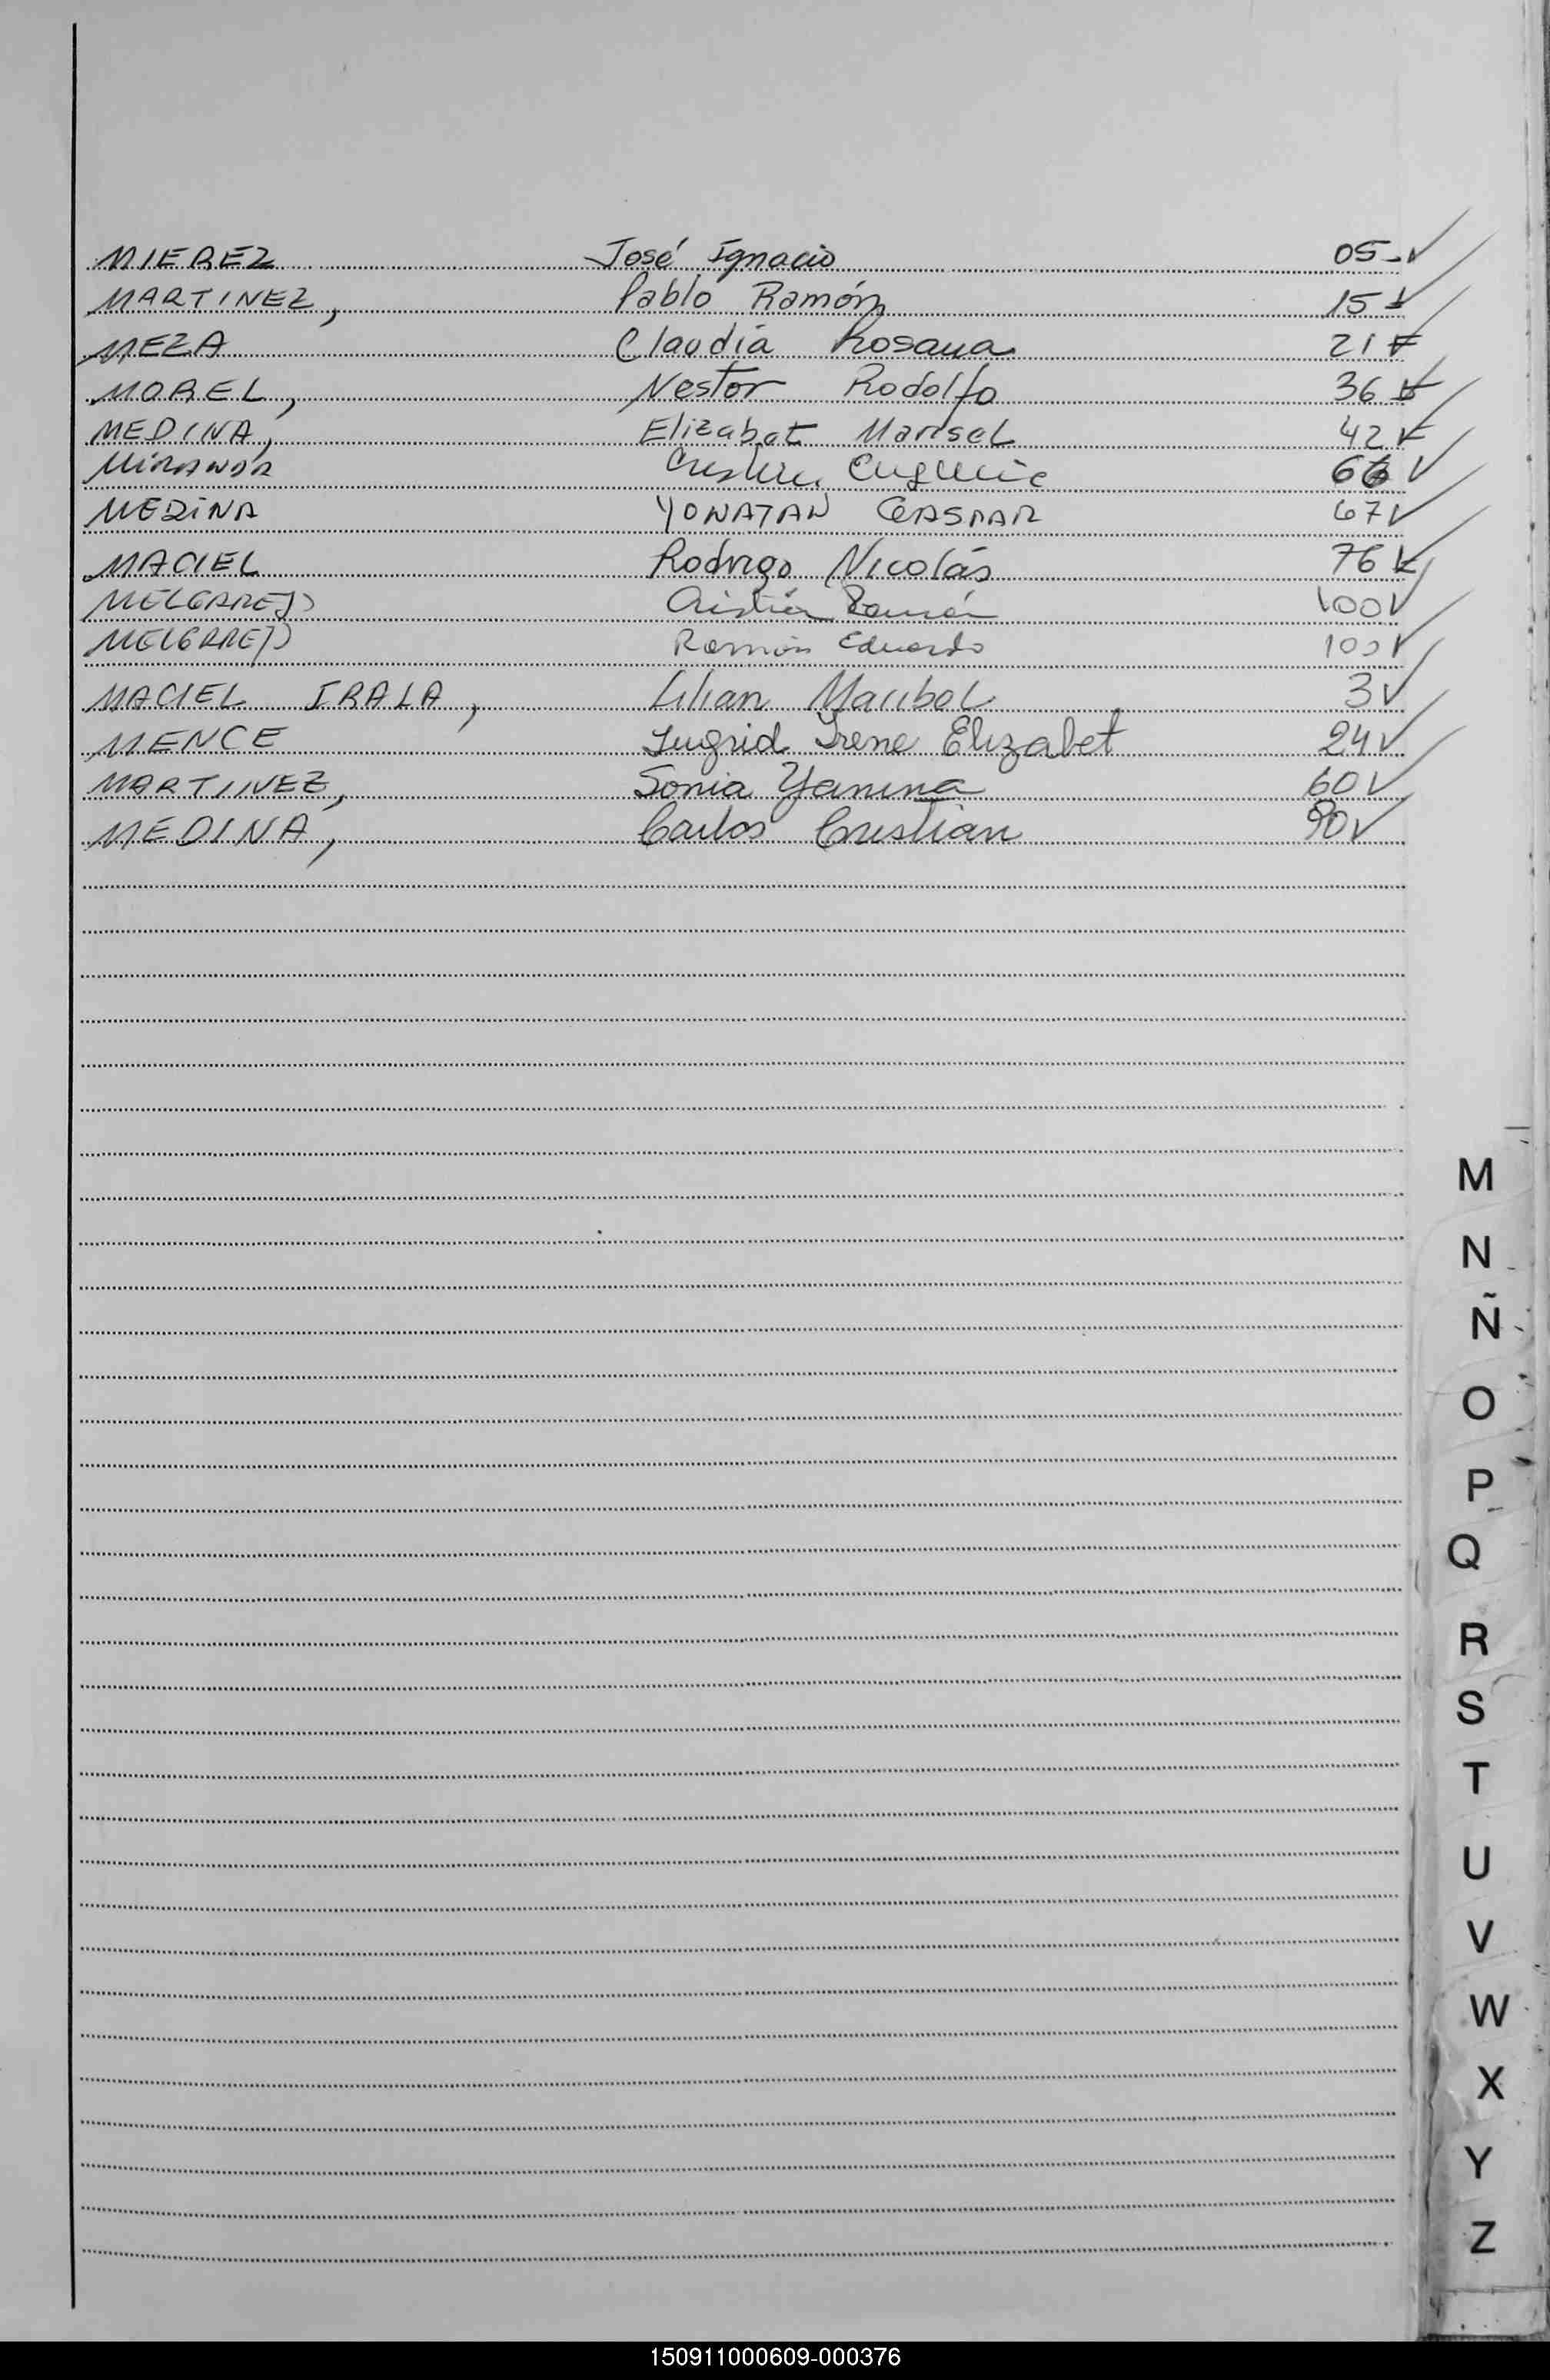 MIEREZ José Ignacio 05-✓
MARTINEZ, Pablo Ramón 15 ✓
MEZA Claudia Rosana 21 ✓
MOREL, Nestor Rodolfo 36 ✓
MEDINA, Elizabet Marisel 42 ✓
MIRANDA 66 ✓
MEDINA YONATAN GASPAR 67 ✓
MACIEL Rodrigo Nicolás 76 ✓
MELGAREJO Cristián Ramón 100 ✓
MELGAREJO Ramón Eduardo 100 ✓
MACIEL IRALA, Lilian Maribel 3 ✓
MENCE Ingrid Irene Elizabet 24 ✓
MARTINEZ, Sonia Yanina 60 ✓
MEDINA, Carlos Cristian 90 ✓
M
N
Ñ
O
P
Q
R
S
T
U
V
W
X
Y
Z
150911000609-000376